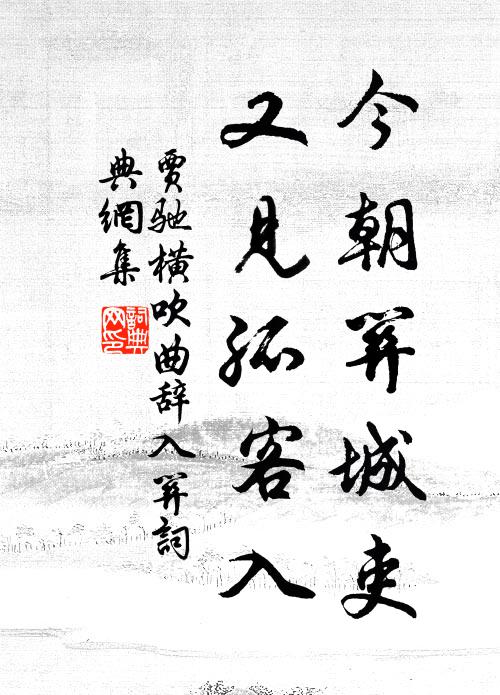 今朝关城吏
又見孤客入
賈馳橫吹曲辞入关詞
典網集
詞典网印